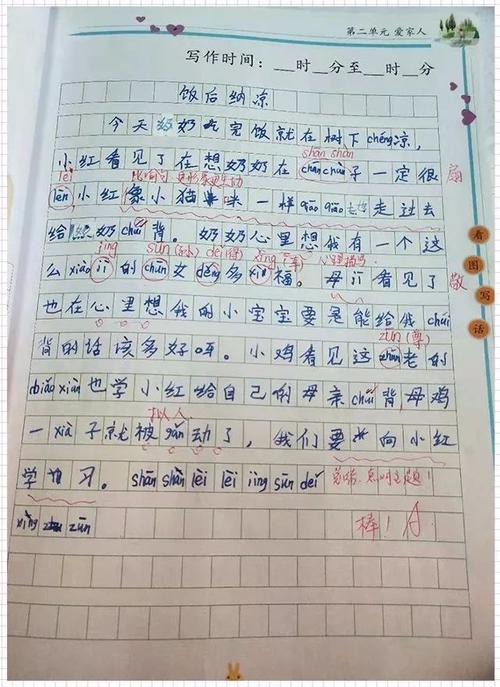 第二单元 爱家人
写作时间：__时__分至__时__分
饭后纳凉
今天奶奶吃完饭就在树下chéng凉，
shān shàn
小红看见了在想奶奶在chān chuāi子一定很 扇
lèi 比喻句 更形象更生动
lèn，小红像小猫咪一样qiāo qiāo 走过去
给奶奶chuí背。奶奶心里想我有一个这
jìng sūn(孙) dé(得) xìng(幸) 心理描写
么xiào jì的chūn女děng多xì福。母jī看见了 敬
也在心里想我的小宝宝要是能给我chuí
zūn(尊)
背的话该多好呀。小鸡看见这zhūn老的
biǎo xiàn也学小红给自己的母亲chuí背，母鸡
拟人
一xià子就被gǎn动了，我们要向小红
学习。shān shàn lèi lèi jìng sūn deí
总结，点明主题！
xìng zūn
棒！A
看图写话